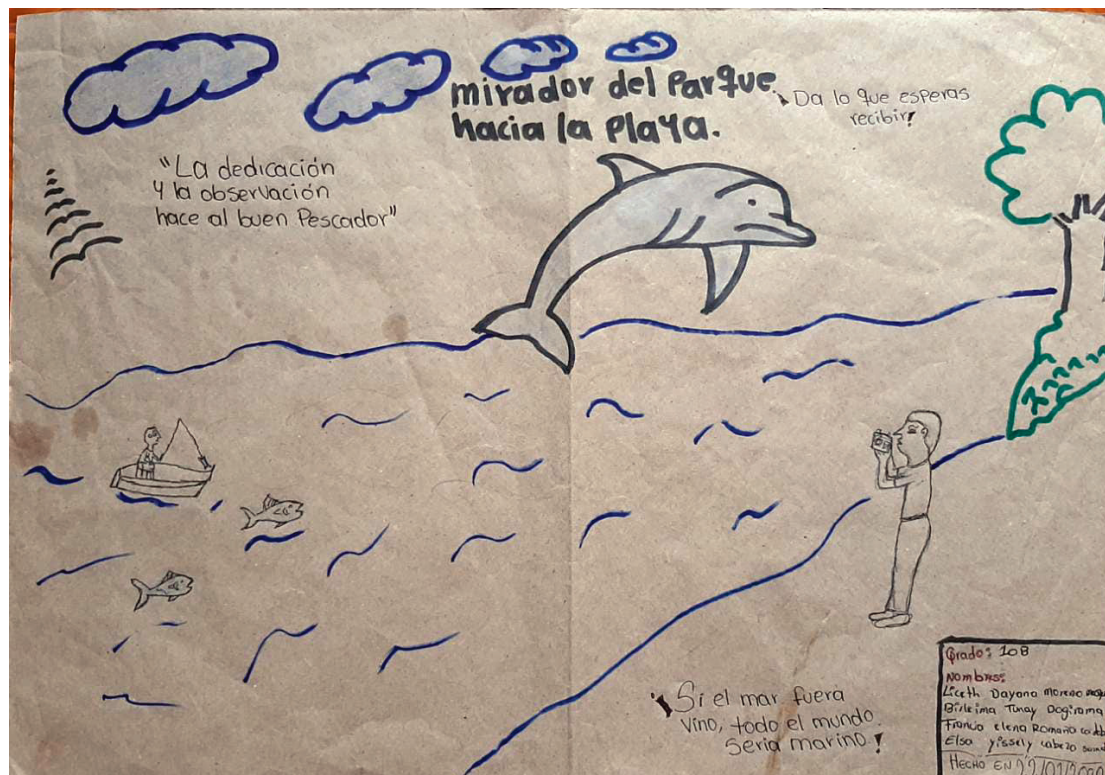 mirador del Parque
hacia la Playa.
¡Da lo que esperas
recibir!
"La dedicación
y la observación
hace al buen Pescador"
¡Si el mar fuera
vino, todo el mundo
seria marino!
Grado: 10B
Nombres:
Liceth Dayana Moreno
Birleima Tunay Dogirama
Francia elena Romaña
Elsa yissely
HECHO EN